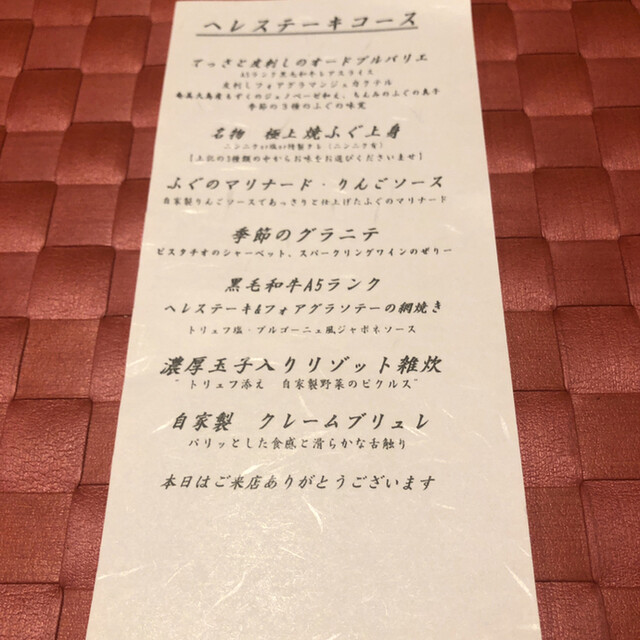 ヘレステーキコース
てっさと皮刺しのオードブルバリエ
A5ランク黒毛和牛とアスライス
皮刺しフォアグラマンジェカクテル
奄美大島産もずくのジェノベーゼ和え、ちぇみのふぐの真子
季節の3種のふぐの味覚
名物 極上焼ふぐ上身
ニンニクor塩or特製タレ(ニンニク有)
[上記の3種類の中からお味をお選びくださいませ]
ふぐのマリナード・りんごソース
自家製りんごソースであっさりと仕上げたふぐのマリナード
季節のグラニテ
ピスタチオのシャーベット、スパークリングワインのぜりー
黒毛和牛A5ランク
ヘレステーキ&フォアグラソテーの網焼き
トリュフ塩・ブルゴーニュ風ジャポネソース
濃厚玉子入りリゾット雑炊
"トリュフ添え 自家製野菜のピクルス"
自家製 クレームブリュレ
パリッとした食感と滑らかな舌触り
本日はご来店ありがとうございます